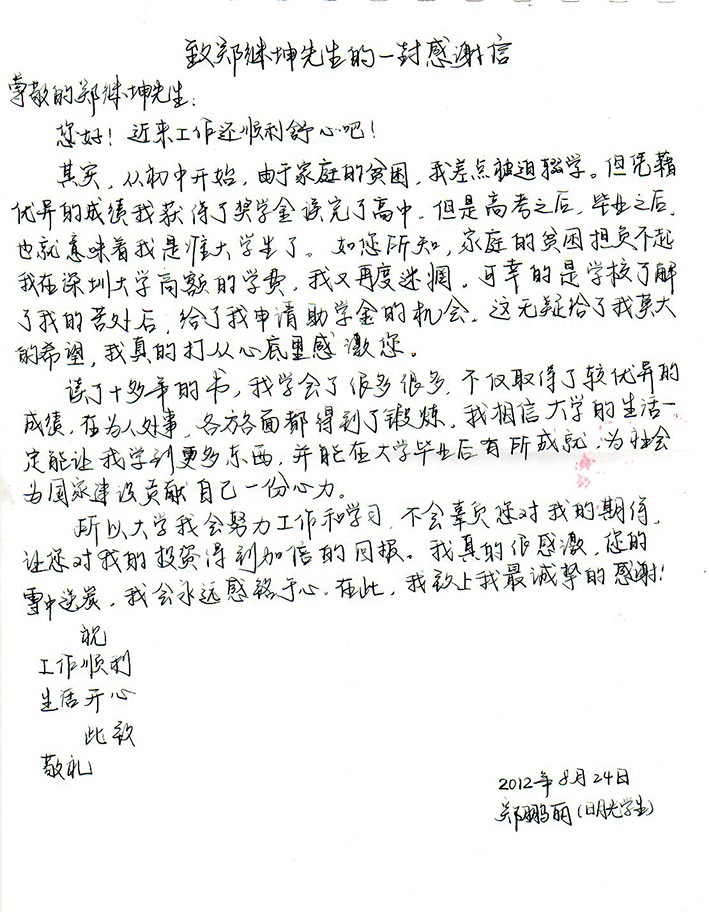 致郑继坤先生的一封感谢信
尊敬的郑继坤先生:
您好!近来工作还顺利舒心吧!
其实,从初中开始,由于家庭的贫困,我差点被迫辍学。但凭藉
优异的成绩我获得了奖学金读完了高中。但是高考之后,毕业之后,
也就意味着我是准大学生了。如您所知,家庭的贫困担负不起
我在深圳大学高额的学费,我又再度迷惘。可幸的是学校了解
了我的苦处后,给了我申请助学金的机会。这无疑给了我莫大
的希望,我真的打从心底里感激您。
读了十多年的书,我学会了很多很多,不仅取得了较优异的
成绩,在为人处事,各方各面都得到了锻炼。我相信大学的生活一
定能让我学到更多东西,并能在大学毕业后有所成就,为社会
为国家建设贡献自己一份心力。
所以大学我会努力工作和学习,不会辜负您对我的期待,
让您对我的投资得到加倍的回报。我真的很感激,您的
雪中送炭,我会永远感铭于心。在此,我致上我最诚挚的感谢!
祝
工作顺利
生活开心
此致
敬礼
2012年8月24日
郑鹏丽(日月光学生)